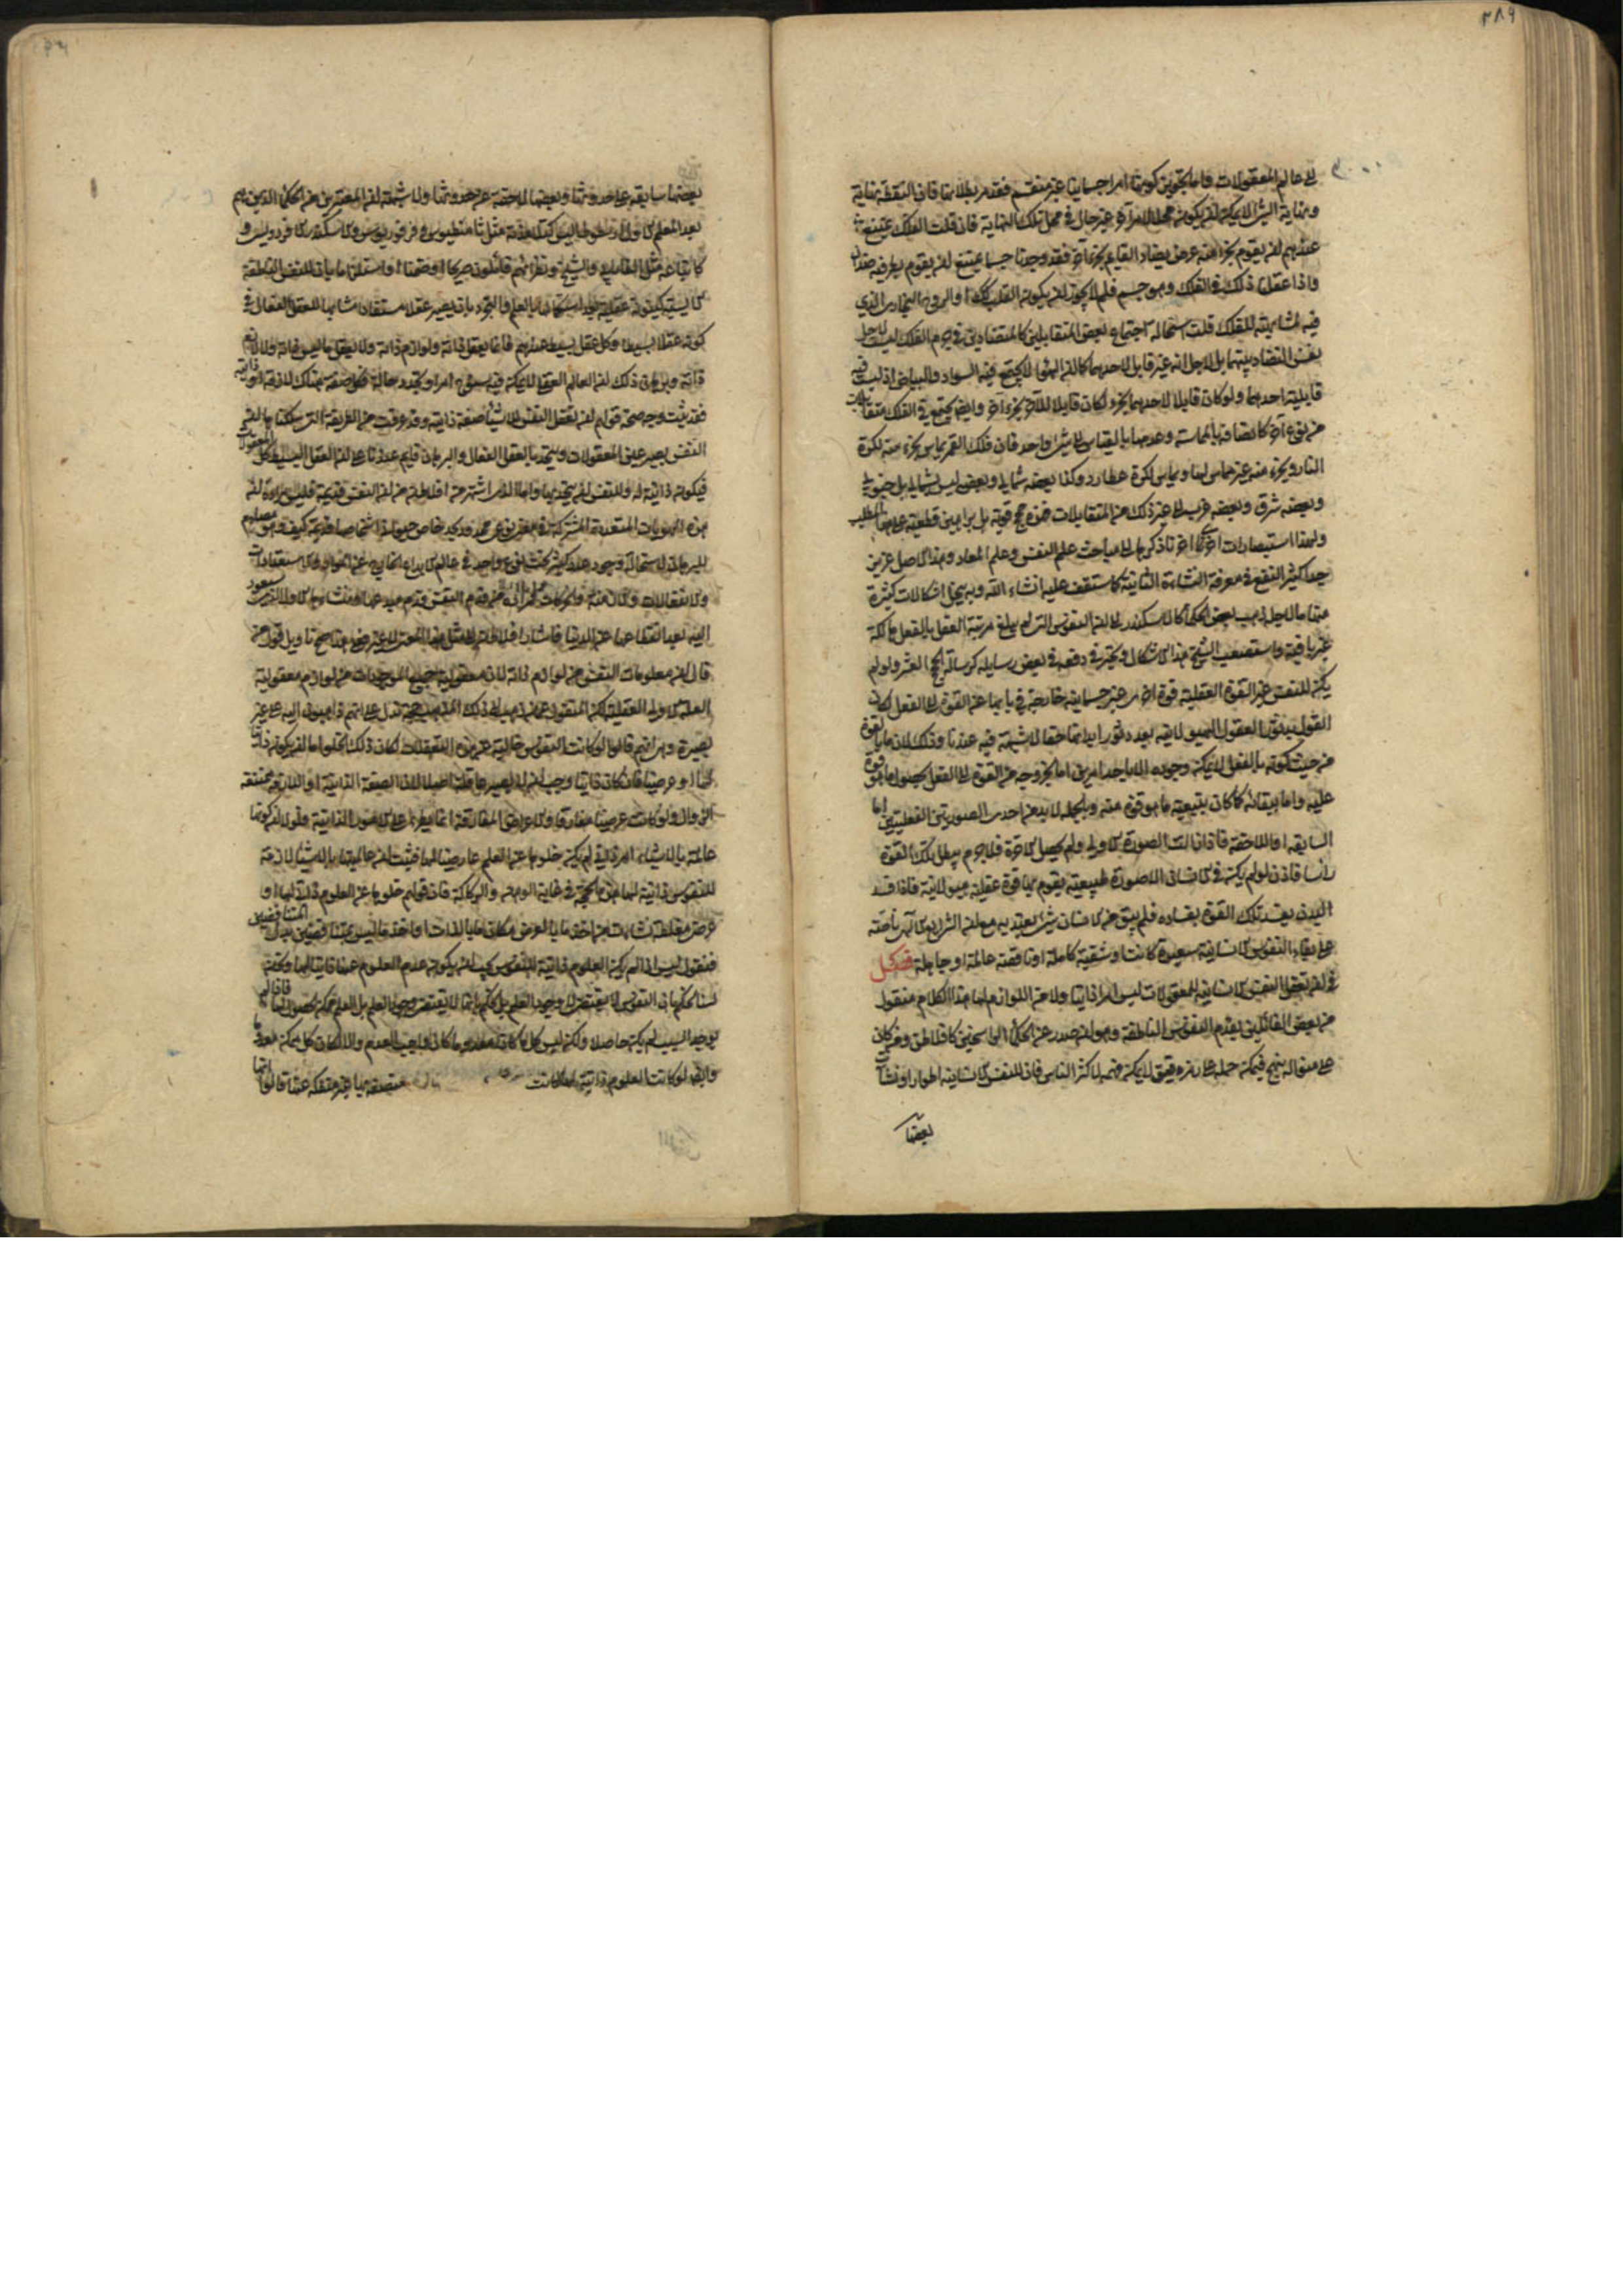 ٣٨٩
الى عالم المعقولات واما تجويز كونها امرا جسمانيا غير منقسم فقد مر بطلانها فان النقطة نهاية
ونهاية الشئ لا يمكن ان يكون محلا لامر آخر غير حال في محل تلك النهاية فان قلت الفلك يمتنع
عندهم ان يقوم بجزء منه عرض يضاد القايم بجزء آخر فقد وجدنا جسما يمتنع ان يقوم بطرفيه ضدان
واذا عقلنا ذلك في الفلك وهو جسم فلم لا يجوز ان يكون القلب كذا او الروح البخاري الذي
فيه لمشابهته للفلك قلت استحالة اجتماع بعض المتقابلين كالمتضادين في جرم الفلك ليست لاجل
نفس التضاد بينهما بل لاجل انه غير قابل لاحدهما كما ان الهواء لا يجتمع فيه السواد والبياض اذ ليست فيه
قابلية احدهما ولو كان قابلا لاحدهما بجزء لكان قابلا للآخر بجزء آخر وايضا يجتمع في الفلك متقابلات
من نوع آخر كاتصافه بالمماسة وعدمها بالقياس الى شئ واحد فان فلك القمر يماس بجزء منه لكرة
النار وبجزء منه غير مماس لها ويماس لكرة عطارد وكذا بعضه شمالي وبعض ليس بشمالي بل جنوبي
وبعضه شرقي وبعضه غربي الى غير ذلك من المتقابلات فهذه حجج قوية بل براهين قطعية على هذا المطلب
ولهذا استبصارات اخرى اخرنا ذكرها الى مباحث علم النفس وعلم المعاد وهذا الاصل عزيز
جدا كثير النفع في معرفة النشاءة الثانية كما ستقف عليه انشاء الله وبه يحل اشكالات كثيرة
منها ما لاجل ذهب بعض الحكماء كالاسكندر الى ان النفوس التي لم يبلغ مرتبة العقل بالفعل هالكة
غير باقية واستصعب الشيخ هذا الاشكال وتحير في دفعه في بعض رسايله كرسالة الحجج العشر ولو لم
يكن للنفس غير القوة العقلية قوة اخرى غير جسمانية خارجة في بابها عن القوة الى الفعل لكان
القول بدثور العقول الهيولانية بعد دثور ابدانها حقا لا شبهة فيه عندنا وذلك لان ما بالقوة
من حيث كونه بالفعل لا يمكن وجوده الا باحد امرين اما بخروجه من القوة الى الفعل بحصول ما هو قوة
عليه واما ببقائه كما كان بتبعية ما هو قوة منه وبالجملة لا بد من احدى الصورتين الفعليتين اما
السابقة او اللاحقة فاذا زالت الصورة الاولى ولم يحصل الاخرة فلا جرم يبطل تلك القوة
رأسا فاذن لو لم يكن في الانسان الا صورة طبيعية يقوم بها قوة عقلية هيولانية فاذا فسد
البدن يفسد تلك القوة بفساده فلم يبق من الانسان شئ يعتد به مع ان الشرايع الالهية ناصة
على بقاء النفوس الانسانية سعيدة كانت او شقية كاملة او ناقصة عالمة او جاهلة فصل
في ان تعقل النفس الانسانية للمعقولات ليس امرا ذاتيا ولا من اللوازم لها هذا الكلام منقول
من بعض القائلين بقدم النفوس الناطقة وهو ان صدر عن الحكماء الراسخين كافلاطون ومن كان
على منواله ينسج فيمكن حمله على رمز دقيق لا يمكن فهمه لاكثر الناس فان للنفس الانسانية اطوارا ونشآت
بعضها
بعضها سابقة على حدوثها وبعضها لاحقة عن حدوثها ولا شبهة ان المعتبرين من الحكماء الذين هم
بعد المعلم الاول ارسطوطاليس كتلامذته مثل ثامسطيوس وفرفوريوس والاسكندر الافردويسي و
كاتباعه مثل الفارابي والشيخ ونظرائهم قائلون صريحا او ضمنا او استلزاما بان للنفس الناطقة
الانسانية كينونة عقلية بعد استكمالها بالعلم والتجرد بان يصير عقلا مستفادا مشابها للعقل الفعال في
كونه عقلا بسيطا وكل عقل بسيط عندهم فانما يعقل ذاته ولوازم ذاته ولا يعقل ما ليس ذاته ولا لازم
ذاته وبرهان ذلك ان العالم العقلي لا يمكن فيه سنوح امر او تجدد حالة فكل صفة هناك لازمة او ذاتية
فقد ثبت وجه صحة قولهم ان تعقل النفس للاشياء صفة ذاتية وقد عرفت من الطريقة التي سلكناها ان
النفس يصير عين المعقولات ويتحد بالعقل الفعال والبرهان قايم عندنا على ان العقل البسيط كل المعقولات
فيكون ذاتية له وللنفس ان يتحد بها واما الذي اشتهر من افلاطن من ان النفس قديمة فليس مراده ان
هذه الهويات المتعددة المشتركة في معنى نوعي محدود بحد خاص حيواني اشخاصها قديمة كيف وهو مصادم
للبرهان لاستحالة وجود عدد كثير تحت نوع واحد في عالم الابداع الخارج عن المواد والاستعدادات
والانفعالات والازمنة والحركات فمراده من قدم النفس قدم مبدعها ومنشئها الاول الذي ستعود
اليه بعد انقطاعها عن الدنيا فاشار افلاطن الى مثل هذا المعنى لا غير فعندنا صح تأويل قول من
قال ان معلومات النفس من لوازم ذاته لان معقولية جميع الموجودات من لوازم معقولية
العلة الاولى العقلية لكن المنقول عمن ذهب الى ذلك المذهب حجة تدل على انهم ذاهبون اليه على غير
بصيرة وهي انهم قالوا لو كانت النفوس خالية عن هذه التعقلات لكان ذلك الخلو اما ان يكون ذاتيا
لها او عرضيا فان كان ذاتيا وجب ان لا يصير عاقلة اصلا لان الصفة الذاتية او اللازمة ممتنعة
الزوال ولو كانت عرضيا مفارقا والاعراض المفارقة انما يطرأ على الامور الذاتية فلولا ان كونها
عالمة بالاشياء امر ذاتي لم يكن خلوها عن العلم عارضيا لها فثبت ان عالميتها بالاشياء لازمة
للنفوس ذاتية لها هذه الحجة في غاية الوهن والركاكة فان قولهم خلوها عن العلوم ذاتي لها او
عرضي مغلطة نشأت من اخذ ما بالعرض مكان ما بالذات او اخذ ما ليس بمتناقضين بدل المتناقضين
فنقول ليس اذا لم يكن العلوم ذاتية للنفوس يجب ان يكون عدم العلوم عنها ذاتيا لها وكذا
لسنا نحكم بان النفوس لا يقتضي لا وجود العلم بل نحكم بانها لا يقتضي وجود العلم بل العلم ممكن الحصول لها فاذا لم
يوجد السبب لم يكن حاصلا ولكن ليس كل ما كان معدوما كان واجب العدم والا لكان كل ممكن معدوم
وايضا لو كانت العلوم ذاتية لها لكانت متصفة بها غير منفكة عنها قالوا انها